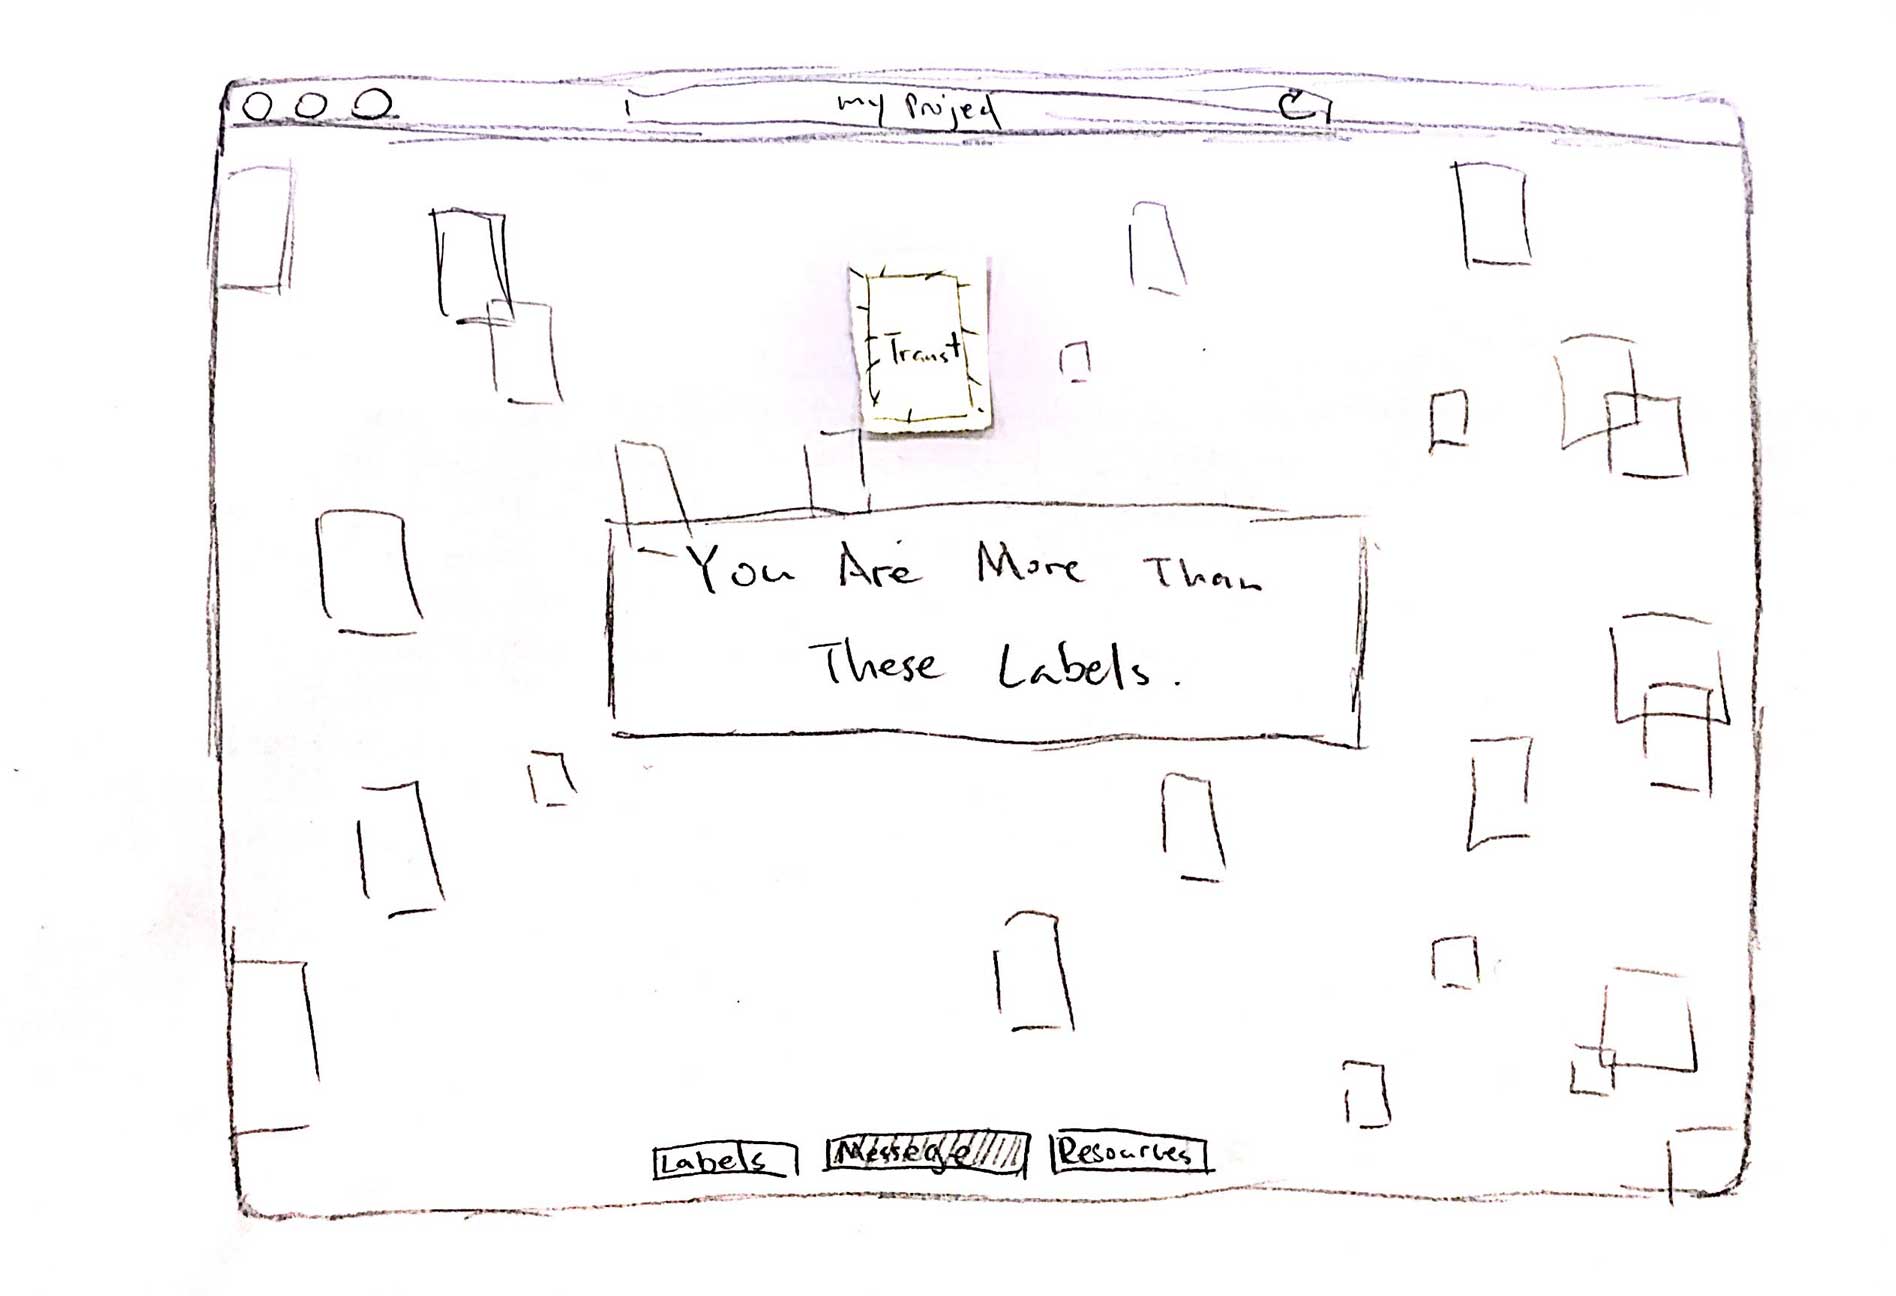 my Project
Transt
You Are More Than
These Labels.
Labels
Message
Resources